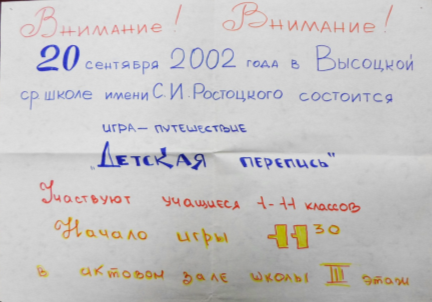 Внимание! Внимание!
20 сентября 2002 года в Высоцкой
ср.школе имени С.И.Ростоцкого состоится
игра- путешествие
"Детская перепись"
Участвуют учащиеся 1-11 классов
Начало игры 11 30
в актовом зале школы III этаж